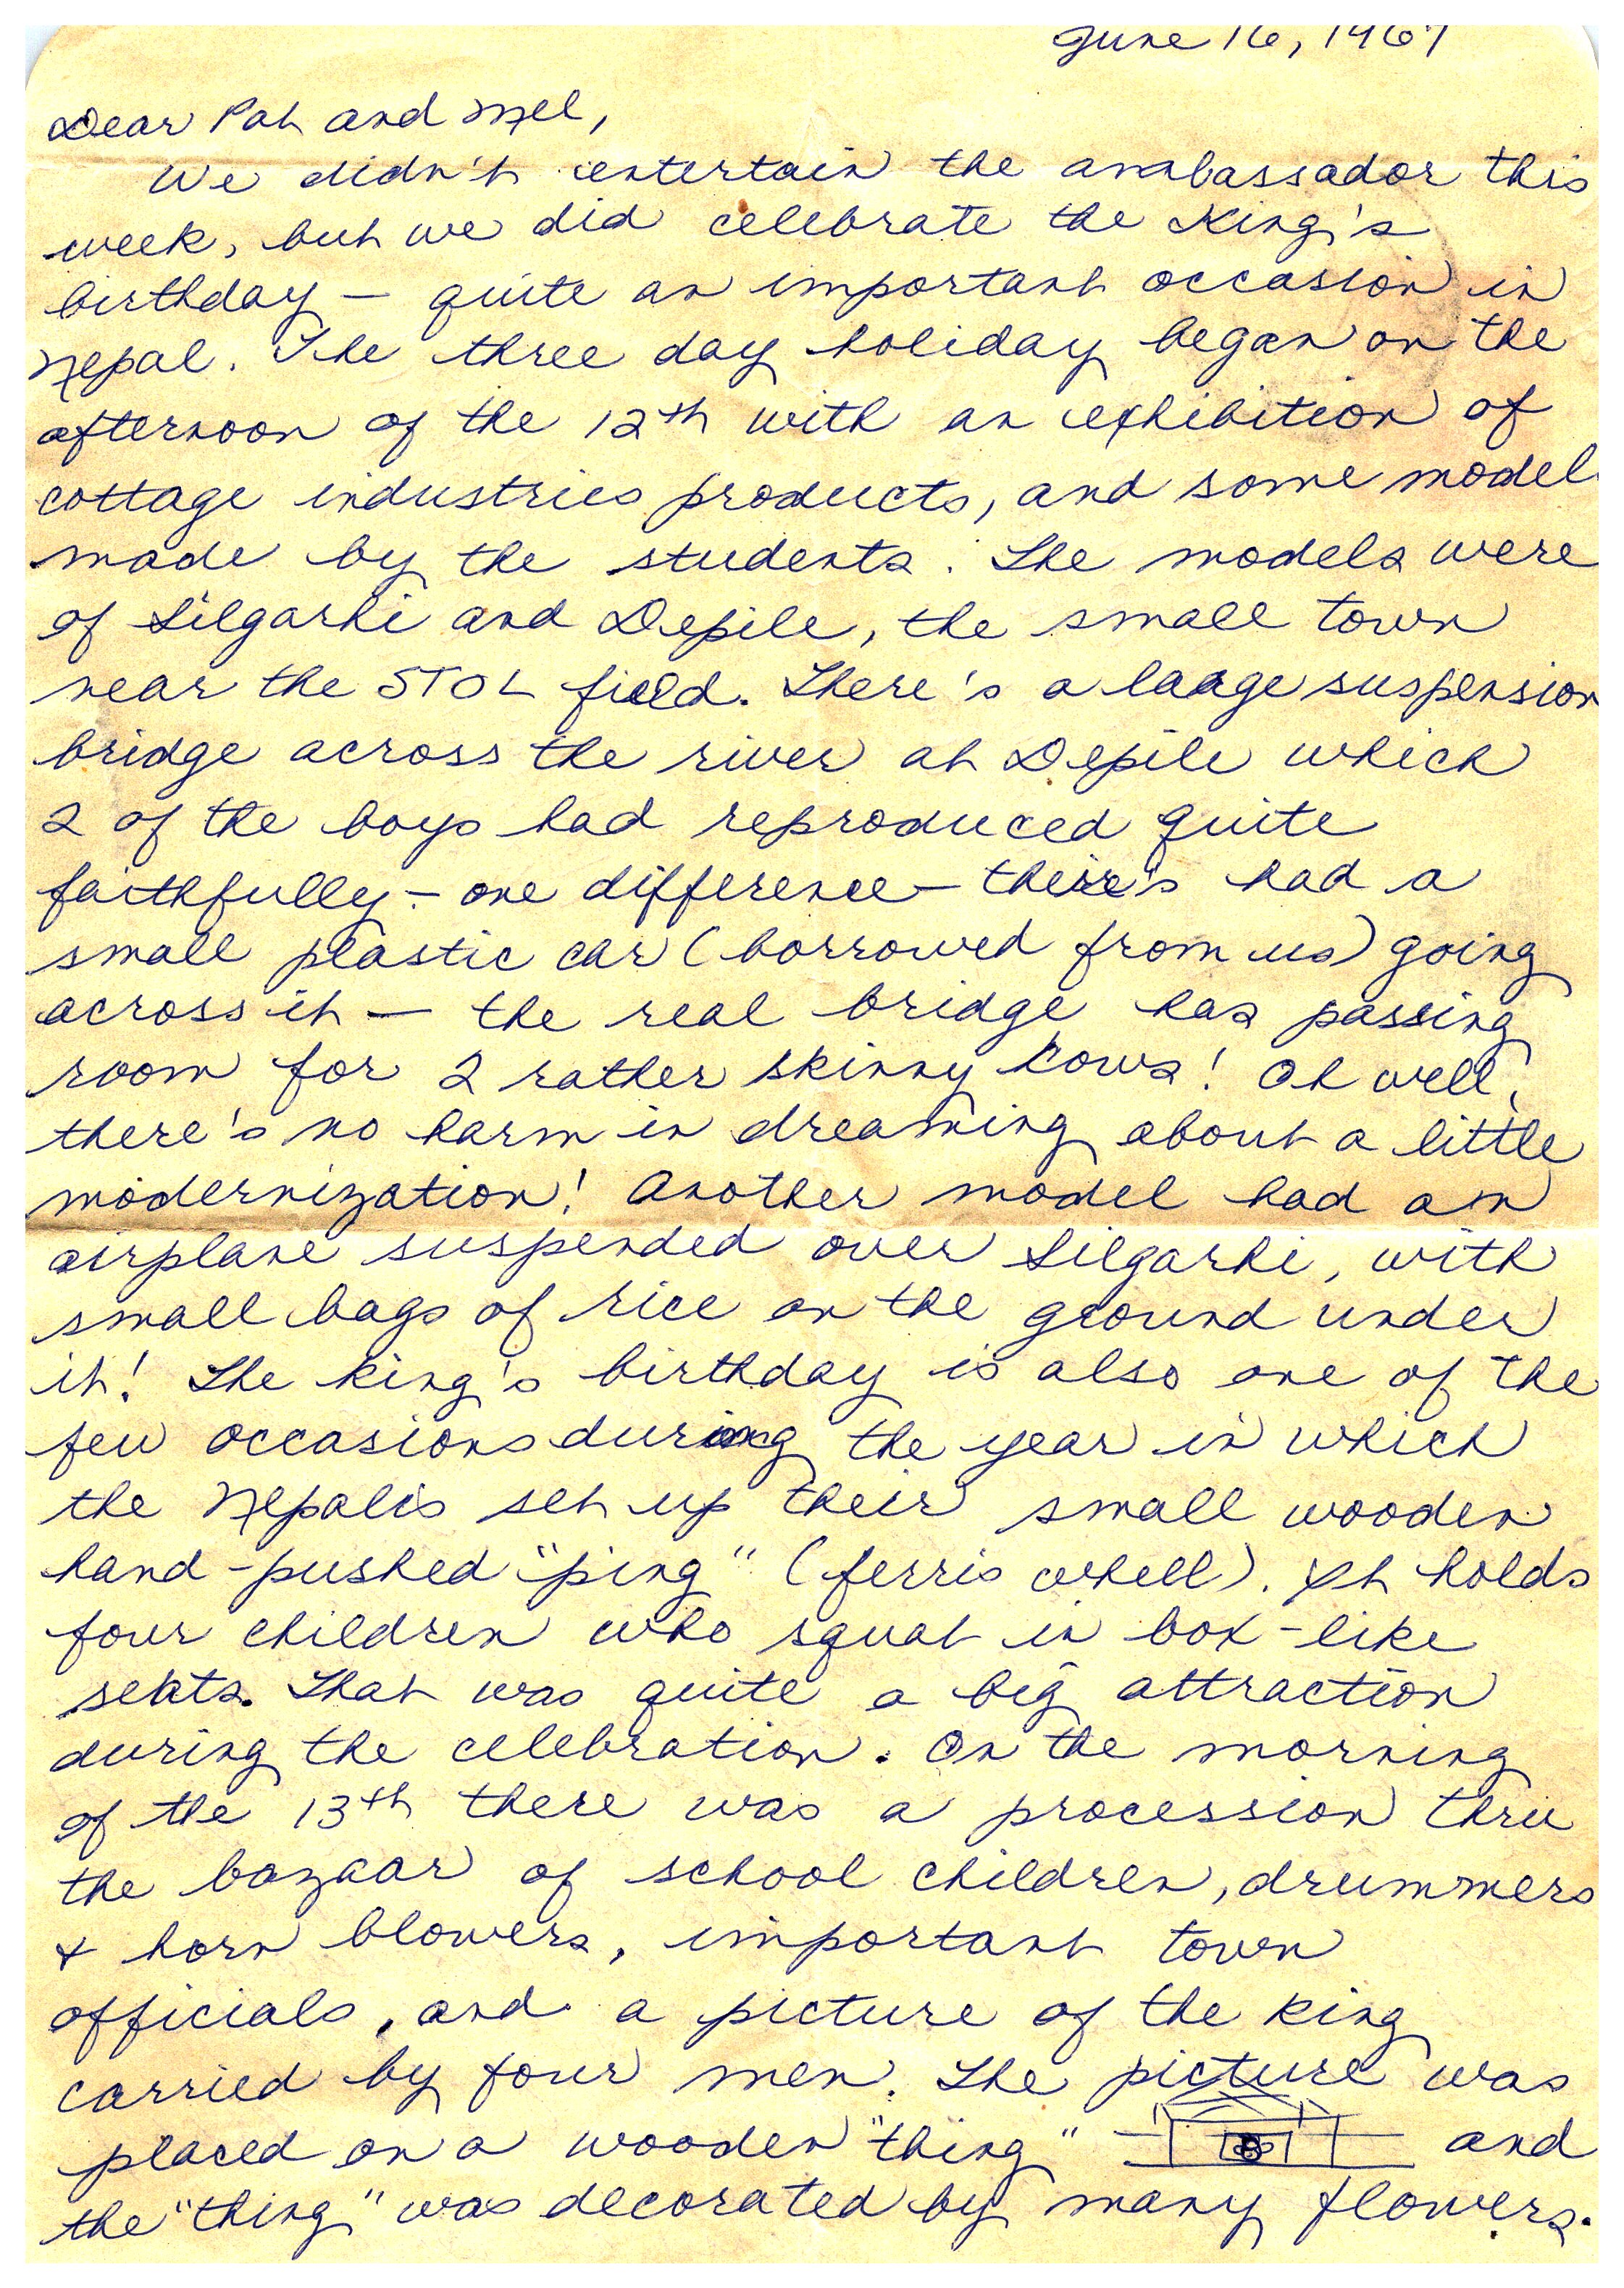 June 16, 1967
Dear Pat and Mel,
We didn't entertain the ambassador this
week, but we did celebrate the King's
birthday — quite an important occasion in
Nepal. The three day holiday began on the
afternoon of the 12th with an exhibition of
cottage industries products, and some model
made by the students. The models were
of Silgarhi and Depile, the small town
near the STOL field. There's a large suspension
bridge across the river at Depile which
2 of the boys had reproduced quite
faithfully — one difference — their's had a
small plastic car (borrowed from us) going
across it — the real bridge has passing
room for 2 rather skinny cows! Oh well,
there's no harm in dreaming about a little
modernization! Another model had an
airplane suspended over Silgarhi, with
small bags of rice on the ground under
it! The king's birthday is also one of the
few occasions during the year in which
the Nepalis set up their small wooden
hand-pushed "ping" (ferris whell). It holds
four children who squat in box-like
seats. That was quite a big attraction
during the celebration. On the morning
of the 13th there was a procession thru
the bazaar of school children, drummers
+ horn blowers, important town
officials, and a picture of the king
carried by four men. The picture was
placed on a wooden "thing" and
the "thing" was decorated by many flowers.